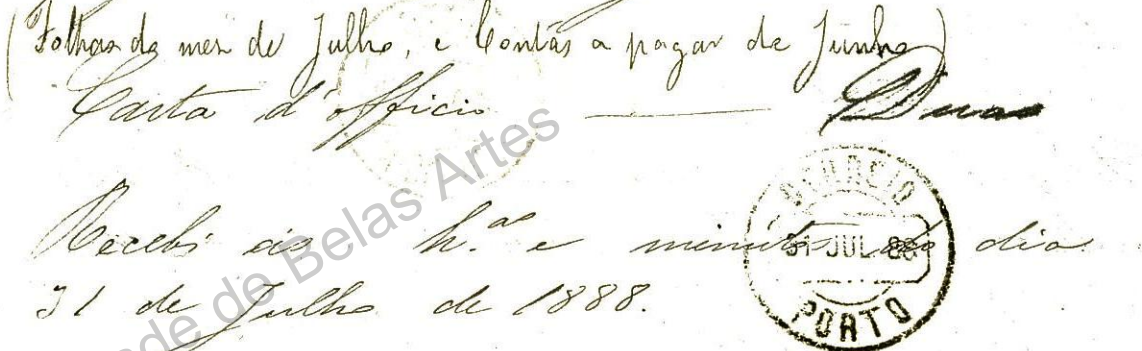 (Folhas do mez de Julho, e Contas a pagar de Junho)
Carta d'officio — Duas
Recebi ás h.as e minutos do dia
31 de Julho de 1888.
31 JUL 88
PORTO
de de Belas Artes